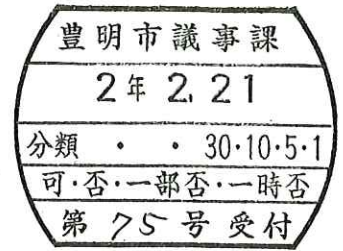 豊明市議事課
2年 2.21
分類 ・ ・ 30・10・5・1
可・否・一部否・一時否
第 75 号 受付